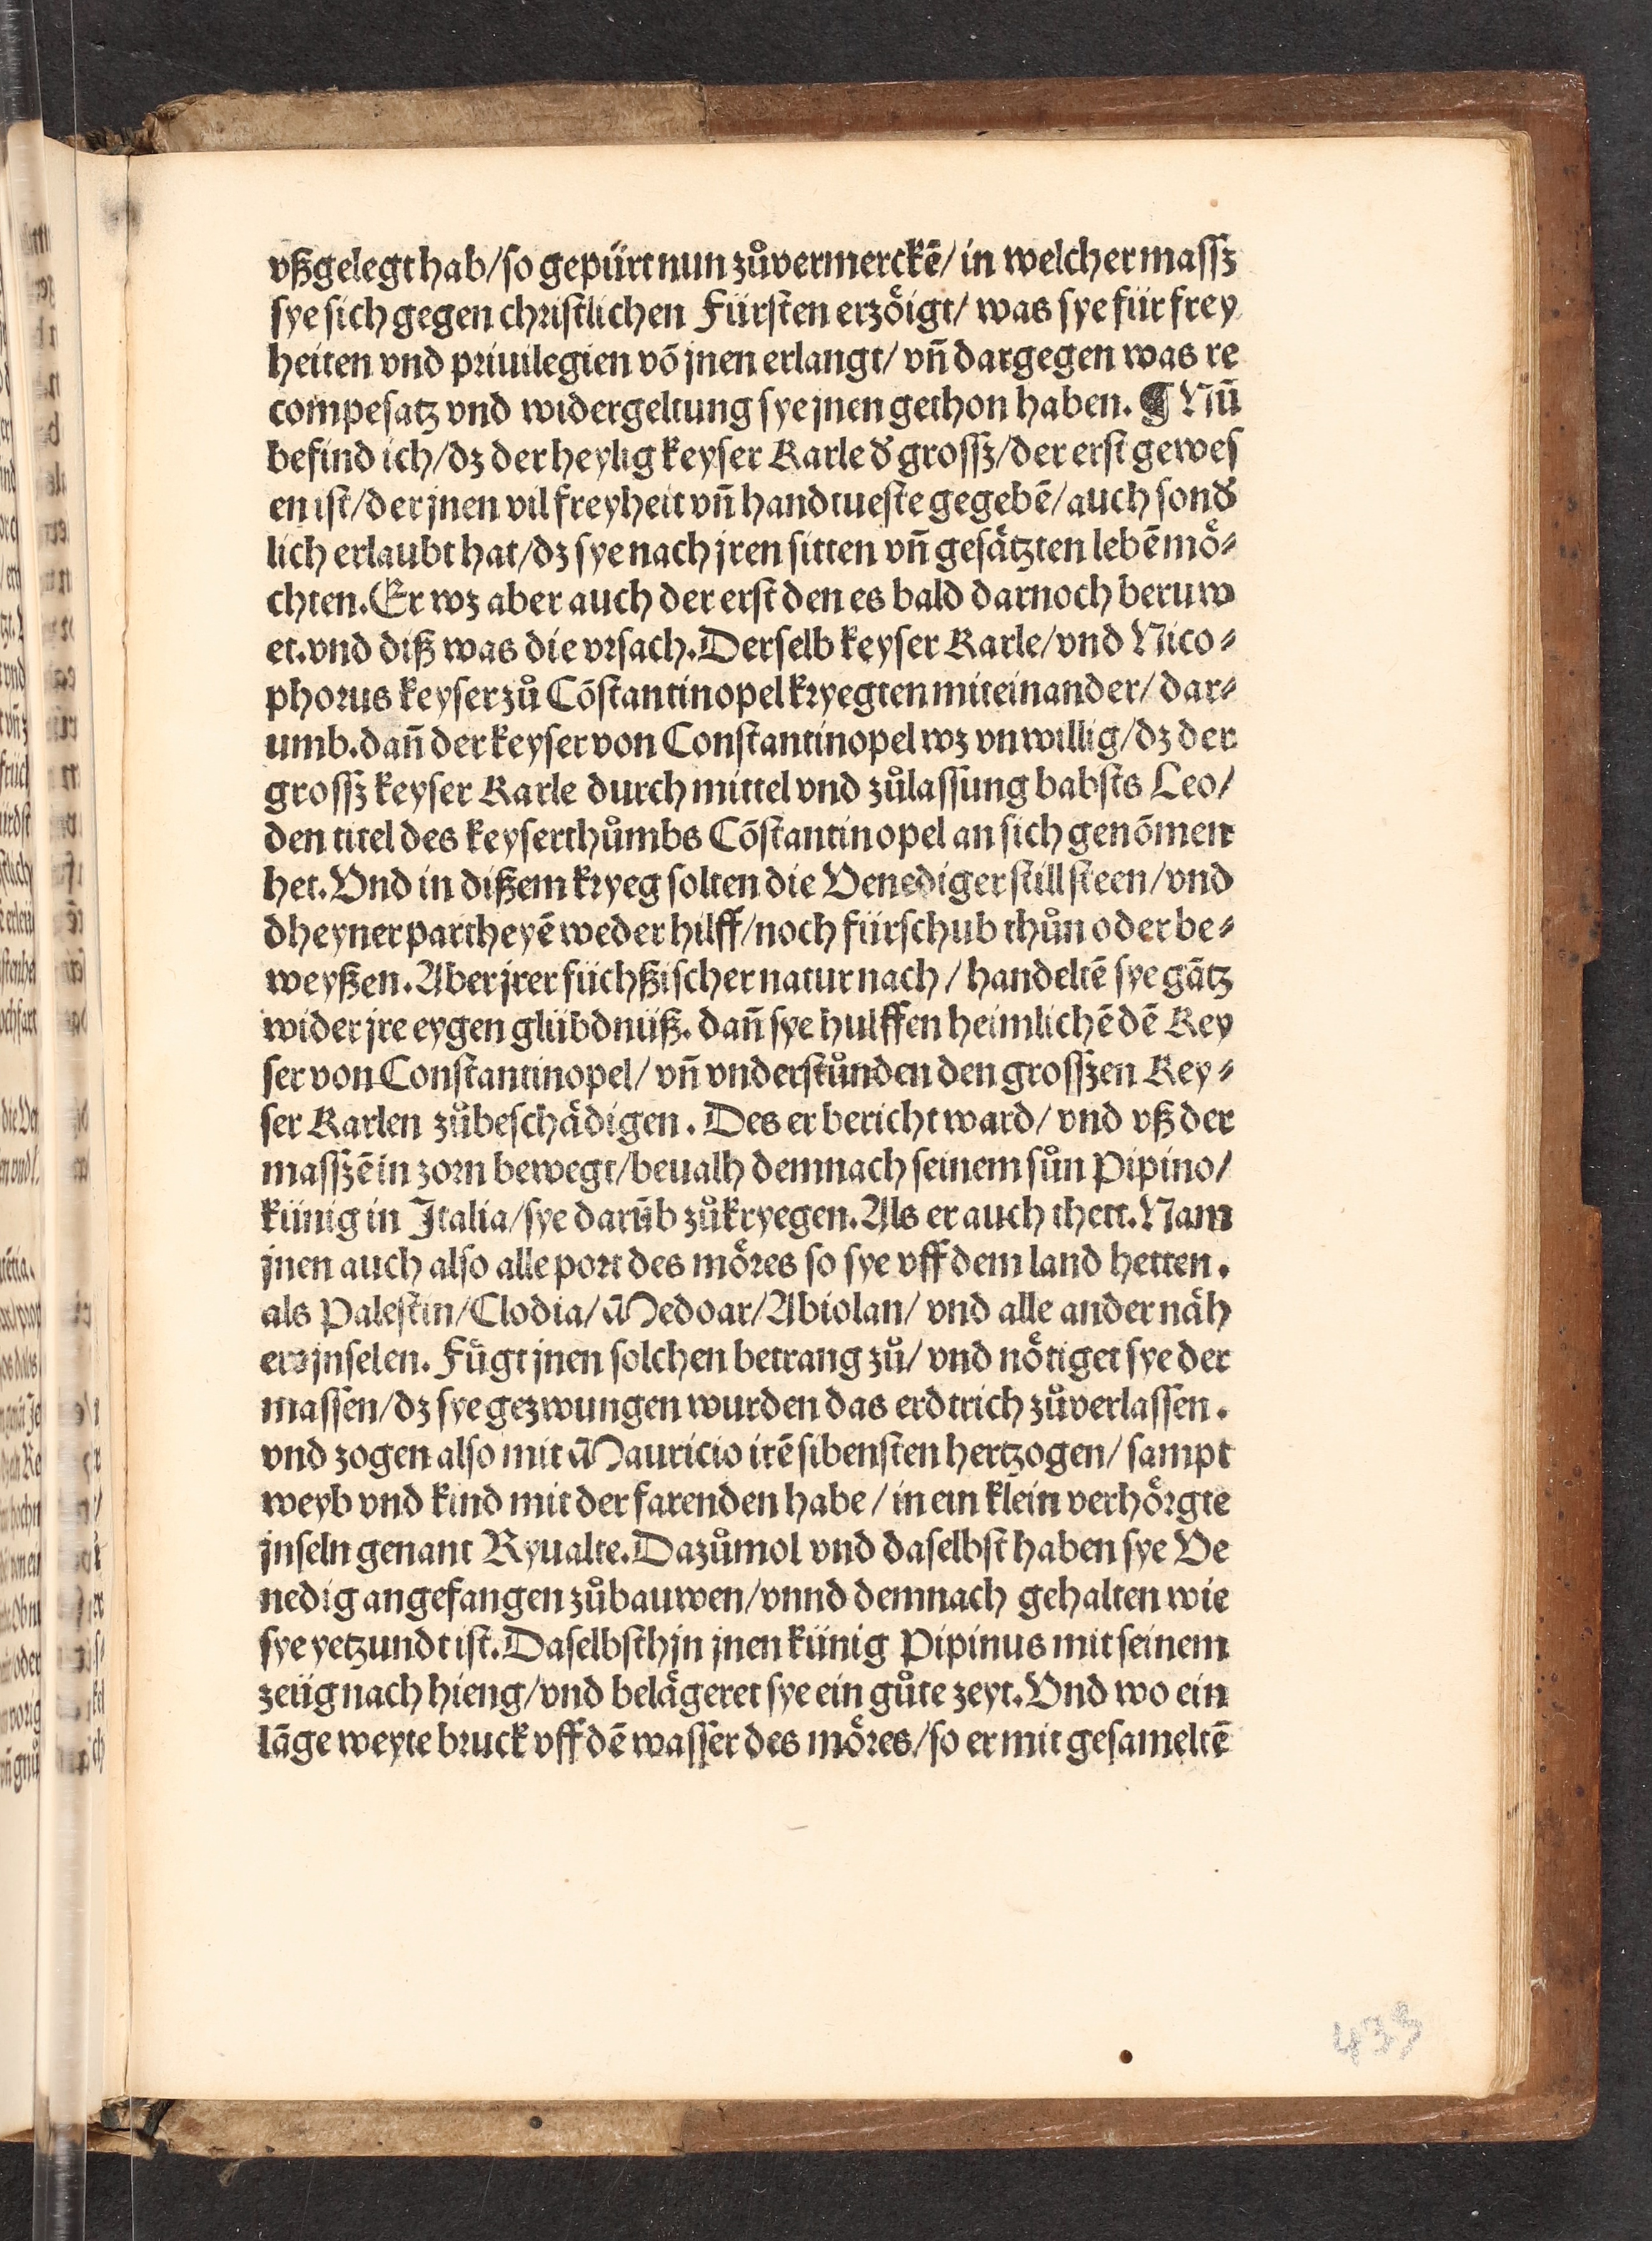 vßgelegt hab/so gepürt nun zůvermerckē/ in welcher massz
sye sich gegen christlichen Fürsten erzöigt/ was sye für frey
heiten vnd priuilegien võ jnen erlangt/ vñ dargegen was re
compesatz vnd widergeltung sye jnen gethon haben. ¶ Nū
befind ich/dz der heylig keyser Karle d' grossz/der erst gewes
en ist/der jnen vil freyheit vñ handtueste gegebē/auch sond'
lich erlaubt hat/dz sye nach jren sitten vñ gesätzten lebē mö⸗
chten. Er wz aber auch der erst den es bald darnoch beruw
et. vnd diß was die vrsach. Derselb keyser Karle/vnd Nico⸗
phorus keyser zů Cōstantinopel kryegten miteinander/ dar⸗
umb. dañ der keyser von Constantinopel wz vnwillig/dz der
grossz keyser Karle durch mittel vnd zůlassung babsts Leo/
den titel des keyserthůmbs Cōstantinopel an sich genōmen
het. Vnd in dißem kryeg solten die Venediger still steen/vnd
dheyner partheyē weder hilff/noch fürschub thůn oder be⸗
weyßen. Aber jrer füchßischer natur nach/ handeltē sye gātz
wider jre eygen glübdnüß. dañ sye hulffen heimlichē dē Key
ser von Constantinopel/ vñ vnderstůnden den grosszen Key⸗
ser Karlen zůbeschädigen. Des er bericht ward/ vnd vß der
masszē in zorn bewegt/beualh demnach seinem sůn Pipino/
künig in Italia/sye darūb zůkryegen. Als er auch thett. Nam
jnen auch also alle port des möres so sye vff dem land hetten.
als Palestin/Clodia/Medoar/Abiolan/ vnd alle ander näh
ere jnselen. Fügt jnen solchen betrang zů/ vnd nötiget sye der
massen/dz sye gezwungen wurden das erdtrich zůverlassen.
vnd zogen also mit Mauricio irē sibensten hertzogen/ sampt
weyb vnd kind mit der farenden habe/ in ein klein verhörgte
jnseln genant Ryualte. Dazůmol vnd daselbst haben sye Ve
nedig angefangen zůbauwen/vnnd demnach gehalten wie
sye yetzundt ist. Daselbsthjn jnen künig Pipinus mit seinem
zeüg nach hieng/vnd belägeret sye ein gůte zeyt. Vnd wo ein
lāge weyte bruck vff dē wasser des möres/so er mit gesameltē
433